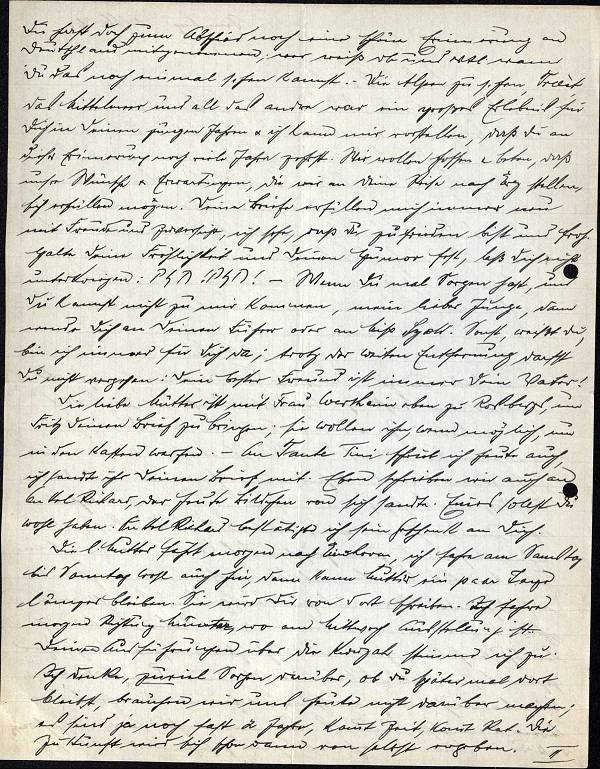 Du hast doch zum Abschied noch eine schöne Erinnerung an
Deutschland mitgenommen; wer weiß ob und evtl. wann
Du das noch einmal sehen kannst. - Die Alpen zu sehen,
das Mittelmeer und all das andere war ein großes Erlebnis für
Dich in Deinen jungen Jahren & ich kann mir vorstellen, daß Du an
diese Erinnerung noch viele Jahre Wir wollen hoffen & beten, daß
unsre Wünsche & Erwartungen, die wir an Deine Reise nach stellen,
sich erfüllen mögen. Deine Briefe erfüllen mich immer neu
mit Freude und Zuversicht, ich sehe, daß Du zufrieden bist und froh.
Halte Deine Fröhlichkeit und Deinen Humor fest, laß Dich nicht
unterkriegen: חזק חזק! - Wenn Du mal Sorgen hast, und
Du kannst nicht zu mir kommen, mein lieber Junge, dann
wende Dich an Deinen Führer oder an Sonst, weißt Du,
bin ich immer für Dich da; trotz der weiten Entfernung darfst
Du nicht vergessen: Dein bester Freund ist immer Dein Vater!
Die liebe Mutter ist mit Frau Wertheim eben zu um
Fritz Deinen Brief zu bringen; sie wollen ihn, wenn möglich, um
in den Kasten werfen. - An Tante Tini schreib ich heute auch,
ich sandte ihr Deinen Brief mit. Eben schreiben wir auch an
Onkel Richard, der heute Bildchen von sich sandte. Eines sollst Du
wohl haben. Onkel Richard bestätigte ich sein Geschenk an Dich.
Die l. Mutter fährt morgen nach ich fahre am Samstag
bis Sonntag wohl auch hin, dann kann Mutter ein paar Tage
länger bleiben. Sie wird Dir von dort schreiben. Ich fahre
morgen Richtung Münster, wo am Mittwoch Ausstellung ist.
Deinen Ausführungen über die stimme ich zu.
Ich denke, zuviel Sorgen darüber, ob Du später mal dort
bleibst, brauchen wir uns heute nicht darüber machen;
es sind ja noch fast 2 Jahre, kommt Zeit, kommt Rat. Die
Zukunft wird sich schon dann von selbst ergeben. II